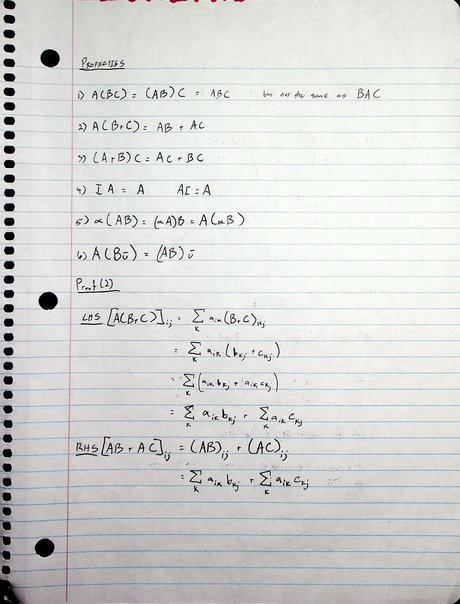 Properties
1) A(BC) = (AB)C = ABC but not the same as BAC
2) A(B+C) = AB + AC
3) (A+B)C = AC + BC
4) IA = A AI = A
5) α(AB) = (αA)B = A(αB)
6) A(Bū) = (AB)ū
Proof (2)
LHS [A(B+C)]ᵢⱼ = Σₖ aᵢₖ(B+C)ₖⱼ
= Σₖ aᵢₖ(bₖⱼ + cₖⱼ)
= Σₖ (aᵢₖbₖⱼ + aᵢₖcₖⱼ)
= Σₖ aᵢₖbₖⱼ + Σₖ aᵢₖcₖⱼ
RHS [AB + AC]ᵢⱼ = (AB)ᵢⱼ + (AC)ᵢⱼ
= Σₖ aᵢₖbₖⱼ + Σₖ aᵢₖcₖⱼ